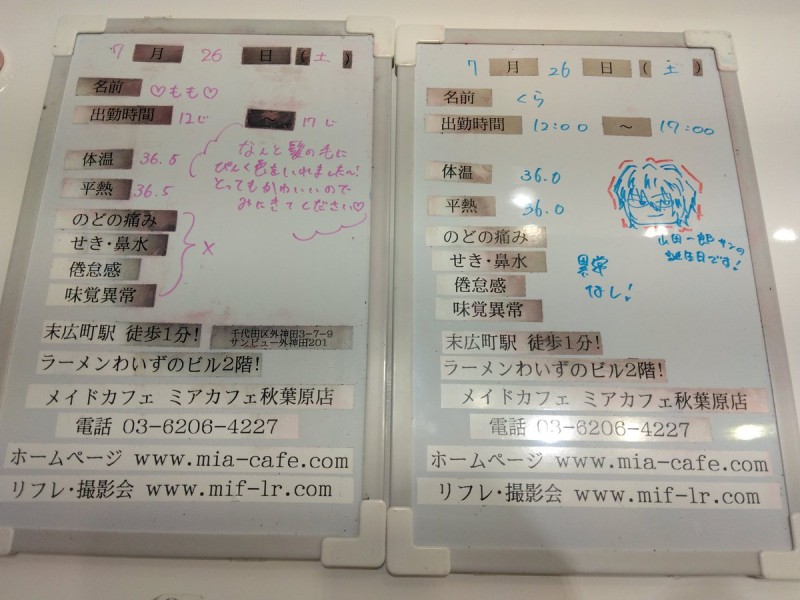 7月26日(土)
名前 ♡もも♡
出勤時間 12じ ~ 17じ
体温 36.5
平熱 36.5
なんと髪の毛に
ぴんく色をいれました〜!
とってもかわいいので
みにきてください♡
のどの痛み
せき・鼻水
倦怠感
味覚異常
×
末広町駅 徒歩1分!
千代田区外神田3-7-9
サンビュー外神田201
ラーメンわいずのビル2階!
メイドカフェ ミアカフェ秋葉原店
電話 03-6206-4227
ホームページ www.mia-cafe.com
リフレ・撮影会 www.mif-lr.com
7月26日(土)
名前 くら
出勤時間 12:00 ~ 17:00
体温 36.0
平熱 36.0
山田一郎サンの
誕生日です!
のどの痛み
せき・鼻水
倦怠感
味覚異常
異常
なし!
末広町駅 徒歩1分!
ラーメンわいずのビル2階!
メイドカフェ ミアカフェ秋葉原店
電話 03-6206-4227
ホームページ www.mia-cafe.com
リフレ・撮影会 www.mif-lr.com